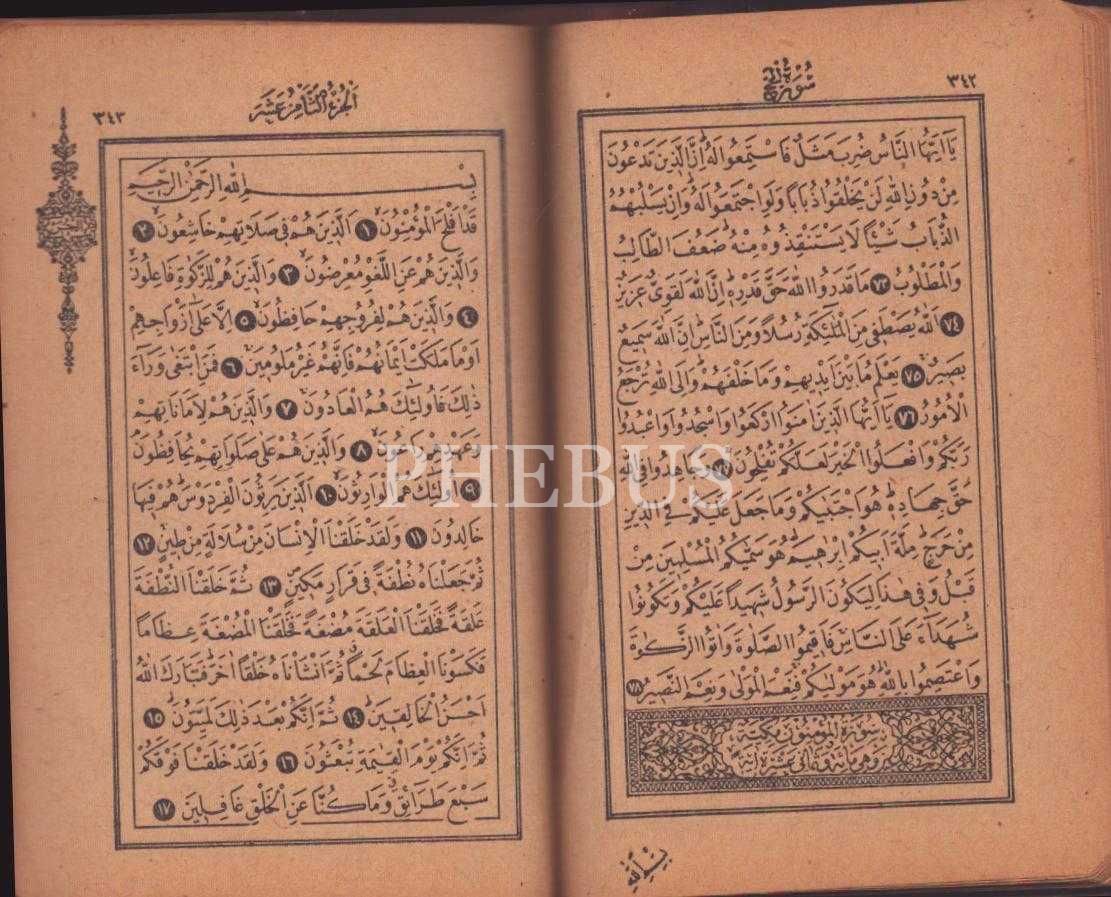 ٣٤٢
سُورَةُ الْحَجِّ
يَٓا اَيُّهَا النَّاسُ ضُرِبَ مَثَلٌ فَاسْتَمِعُوا لَهُ اِنَّ الَّذ۪ينَ تَدْعُونَ
مِنْ دُونِ اللّٰهِ لَنْ يَخْلُقُوا ذُبَابًا وَلَوِ اجْتَمَعُوا لَهُ وَاِنْ يَسْلُبْهُمُ
الذُّبَابُ شَيْئًا لَا يَسْتَنْقِذُوهُ مِنْهُ ضَعُفَ الطَّالِبُ
وَالْمَطْلُوبُ ٧٣ مَا قَدَرُوا اللّٰهَ حَقَّ قَدْرِه۪ اِنَّ اللّٰهَ لَقَوِىٌّ عَز۪يزٌ
٧٤ اَللّٰهُ يَصْطَف۪ى مِنَ الْمَلٰٓئِكَةِ رُسُلًا وَمِنَ النَّاسِ اِنَّ اللّٰهَ سَم۪يعٌ
بَص۪يرٌ ٧٥ يَعْلَمُ مَا بَيْنَ اَيْد۪يهِمْ وَمَا خَلْفَهُمْ وَاِلَى اللّٰهِ تُرْجَعُ
الْاُمُورُ ٧٦ يَٓا اَيُّهَا الَّذ۪ينَ اٰمَنُوا ارْكَعُوا وَاسْجُدُوا وَاعْبُدُوا
رَبَّكُمْ وَافْعَلُوا الْخَيْرَ لَعَلَّكُمْ تُفْلِحُونَ ٧٧ وَجَاهِدُوا فِى اللّٰهِ
حَقَّ جِهَادِه۪ هُوَ اجْتَبٰيكُمْ وَمَا جَعَلَ عَلَيْكُمْ فِى الدّ۪ينِ
مِنْ حَرَجٍ مِلَّةَ اَب۪يكُمْ اِبْرٰه۪يمَ هُوَ سَمّٰيكُمُ الْمُسْلِم۪ينَ مِنْ
قَبْلُ وَف۪ى هٰذَا لِيَكُونَ الرَّسُولُ شَه۪يدًا عَلَيْكُمْ وَتَكُونُوا
شُهَدَٓاءَ عَلَى النَّاسِ فَاَق۪يمُوا الصَّلٰوةَ وَاٰتُوا الزَّكٰوةَ
وَاعْتَصِمُوا بِاللّٰهِ هُوَ مَوْلٰيكُمْ فَنِعْمَ الْمَوْلٰى وَنِعْمَ النَّص۪يرُ ٧٨
سُورَةُ الْمُؤْمِنُونَ مَكِّيَّةٌ
وَهِىَ مِائَةٌ وَثَمَانِىَ عَشْرَةَ اٰيَةً
بِسْمِ اللّٰهِ
٣٤٣
اَلْجُزْءُ الثَّامِنُ عَشَرَ
بِسْمِ اللّٰهِ الرَّحْمٰنِ الرَّح۪يمِ
قَدْ اَفْلَحَ الْمُؤْمِنُونَ ١ اَلَّذ۪ينَ هُمْ ف۪ى صَلَاتِهِمْ خَاشِعُونَ ٢
وَالَّذ۪ينَ هُمْ عَنِ اللَّغْوِ مُعْرِضُونَ ٣ وَالَّذ۪ينَ هُمْ لِلزَّكٰوةِ فَاعِلُونَ
٤ وَالَّذ۪ينَ هُمْ لِفُرُوجِهِمْ حَافِظُونَ ٥ اِلَّا عَلٰٓى اَزْوَاجِهِمْ
اَوْ مَا مَلَكَتْ اَيْمَانُهُمْ فَاِنَّهُمْ غَيْرُ مَلُوم۪ينَ ٦ فَمَنِ ابْتَغٰى وَرَٓاءَ
ذٰلِكَ فَاُولٰٓئِكَ هُمُ الْعَادُونَ ٧ وَالَّذ۪ينَ هُمْ لِاَمَانَاتِهِمْ
وَعَهْدِهِمْ رَاعُونَ ٨ وَالَّذ۪ينَ هُمْ عَلٰى صَلَوَاتِهِمْ يُحَافِظُونَ
٩ اُولٰٓئِكَ هُمُ الْوَارِثُونَ ١٠ اَلَّذ۪ينَ يَرِثُونَ الْفِرْدَوْسَ هُمْ ف۪يهَا
خَالِدُونَ ١١ وَلَقَدْ خَلَقْنَا الْاِنْسَانَ مِنْ سُلَالَةٍ مِنْ ط۪ينٍ ١٢
ثُمَّ جَعَلْنَاهُ نُطْفَةً ف۪ى قَرَارٍ مَك۪ينٍ ١٣ ثُمَّ خَلَقْنَا النُّطْفَةَ
عَلَقَةً فَخَلَقْنَا الْعَلَقَةَ مُضْغَةً فَخَلَقْنَا الْمُضْغَةَ عِظَامًا
فَكَسَوْنَا الْعِظَامَ لَحْمًا ثُمَّ اَنْشَاْنَاهُ خَلْقًا اٰخَرَ فَتَبَارَكَ اللّٰهُ
اَحْسَنُ الْخَالِق۪ينَ ١٤ ثُمَّ اِنَّكُمْ بَعْدَ ذٰلِكَ لَمَيِّتُونَ ١٥
ثُمَّ اِنَّكُمْ يَوْمَ الْقِيٰمَةِ تُبْعَثُونَ ١٦ وَلَقَدْ خَلَقْنَا فَوْقَكُمْ
سَبْعَ طَرَٓائِقَ وَمَا كُنَّا عَنِ الْخَلْقِ غَافِل۪ينَ ١٧
PHEBUS